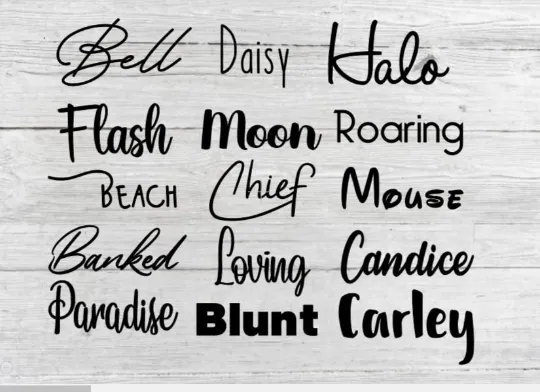 Bell Daisy Halo
Flash Moon Roaring
BEACH Chief Mouse
Banked Loving Candice
Paradise Blunt Carley